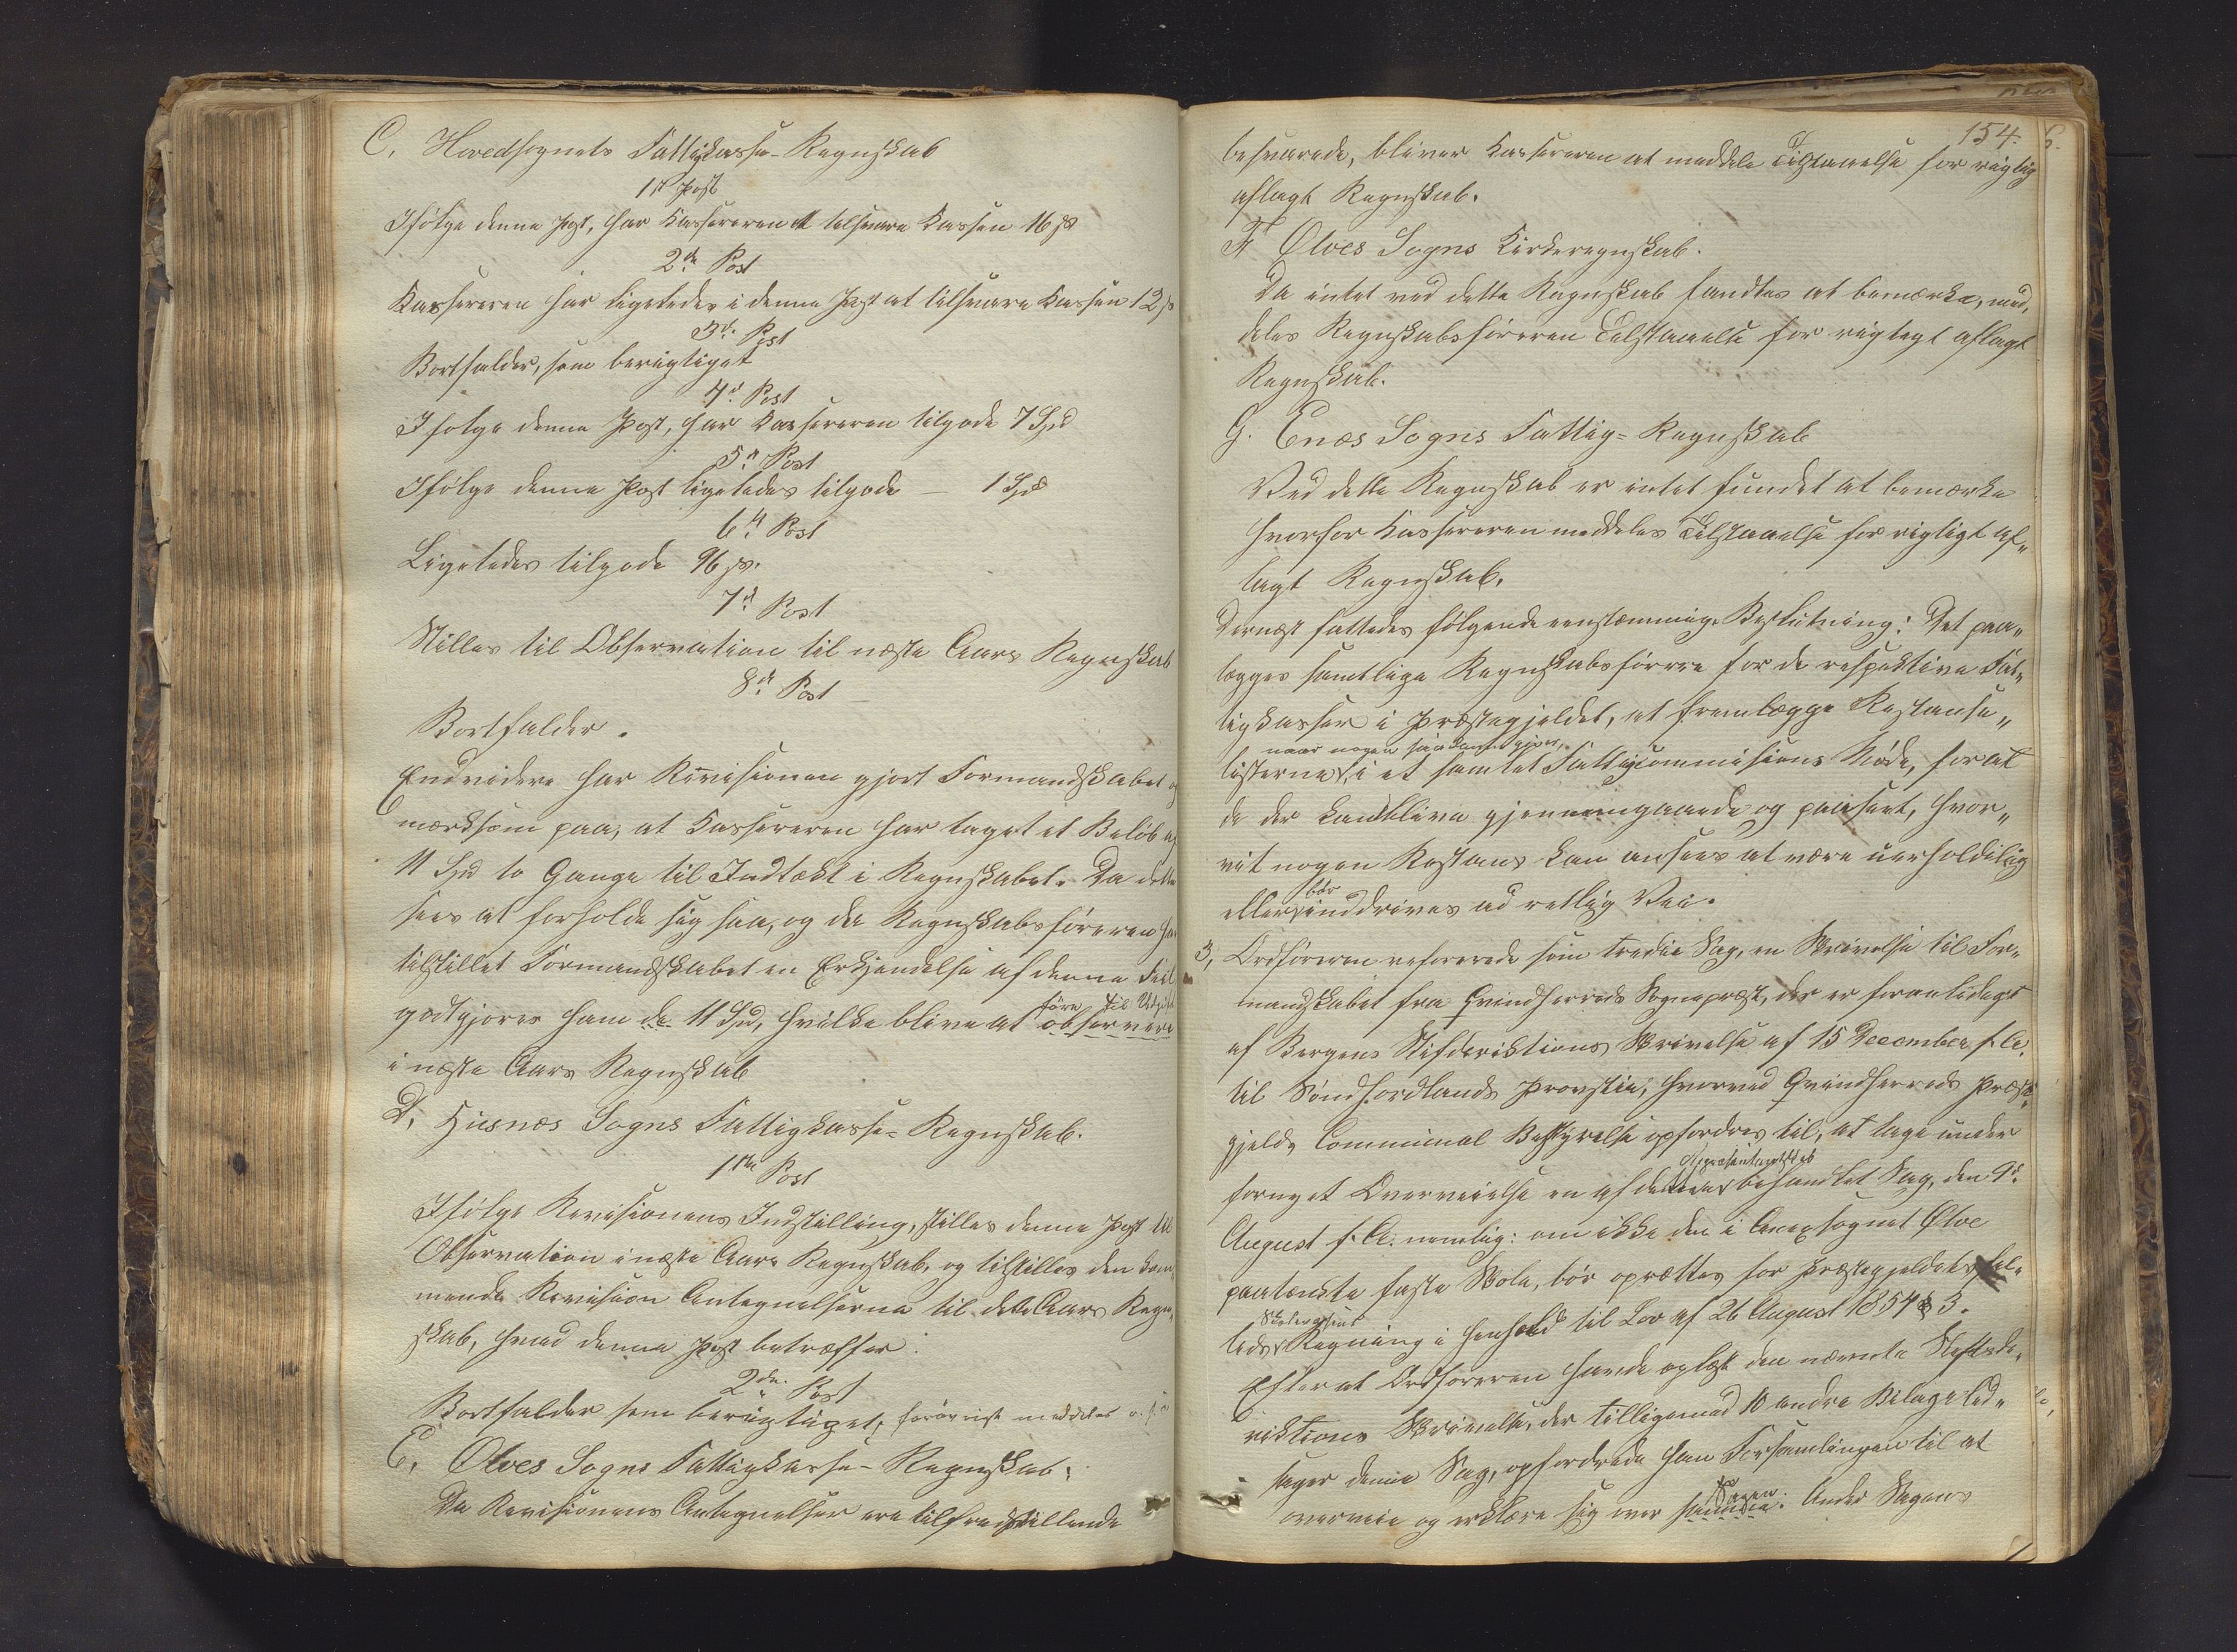 C. Hovedsognets Fattigkasse-Regnskab
1ste Post
Ifølge denne Post, har Kassereren at tilsvare Kassen 16 ß
2den Post
Kassereren har ligeledes i denne Post at tilsvare Kassen 12 ß
3die Post
Bortfalder, som berigtiget
4de Post
Ifølge denne Post, har Kassereren tilgode 7 Spd
5te Post
Ifølge denne Post ligeledes tilgode – 1 Spd
6te Post
Ligeledes tilgode 96 ß.
7de Post
Stilles til Observation til næste Aars Regnskab
8de Post
Bortfalder.
Endvidere har Revisionen gjort Formandskabet op
mærksom paa, at Kassereren har taget et Beløb af
11 Spd to Gange til Indtægt i Regnskabet. Da dette
sees at forholde sig saa, og da Regnskabsføreren har
tilstillet Formandskabet en Erkjendelse af denne Feil
godtgjøres ham de 11 Spd, hvilke blive at observere
føre til Udgift
i næste Aars Regnskab
D. Husnæs Sogns Fattigkasse-Regnskab.
1ste Post
Ifølge Revisionens Indstilling, stilles denne Post til
Observation i næste Aars Regnskab, og tilstilles den kom„
mende Revision Antegnelserne til dette Aars Regn„
skab, hvad denne Post betræffer.
2den Post
Bortfalder som berigtiget, forøvrigt meddeles
E. Ølves Sogns Fattigkasse-Regnskab.
Da Revisionens Antegnelser ere tilfredsstillende
154.
besvarede, bliver Kassereren at meddele Tilstaaelse for rigtig
aflagt Regnskab.
F Ølves Sogns Kirkeregnskab.
Da intet ved dette Regnskab fandtes at bemærke, med„
deles Regnskabsføreren Tilstaaelse for rigtigt aflagt
Regnskab.
G. Enæs Sogns Fattig-Regnskab
Ved dette Regnskab er intet fundet at bemærke
hvorfor Kassereren meddeles Tilstaaelse for rigtigt af„
lagt Regnskab.
Dernæst fattedes følgende eenstemmige Beslutning: Det paa„
lægges samtlige Regnskabsførere for de respektive Fat„
tigkasser i Præstegjeldet, at fremlægge Restanse„
naar nogen saadanne gives,
listerne, i et samlet Fattigcommisions Møde, for at
de der kan blive gjennemgaaede og paaseet, hvor„
vit nogen Restans kan ansees at være uerholdelig
eller bør inddrives ad retlig Vei.
3, Ordføreren refererede som tredie Sag, en Skrivelse til For„
mandskabet fra Qvindherreds Sognepræst, der er foranlediget
af Bergens Stifdiriktions Skrivelse af 15 December f. A.
til Søndhordlands Provstie, hvorved Qvindherreds Præste„
gjelds Communal Bestyrelse opfordres til, at tage under
Repræsentantskab
fornyet Overveielse en af dettes behandlet Sag, den 9de
August f. A. nemlig: om ikke den i Anexsognet Ølve
paatænkte faste Skole, bør oprettes for Præstegjeldets fæl„
Skolevæsens
leds Regning i Henhold til Lov af 26 August 1854 § 3.
Efter at Ordføreren havde oplæst den nævnte Stiftsdi„
riktions Skrivelse, der tilligemed 10 andre Bilage led„
sager denne Sag, opfordrede han Forsamlingen til at
overveie og erklære sig over samme. Under Sagens
Sagen.